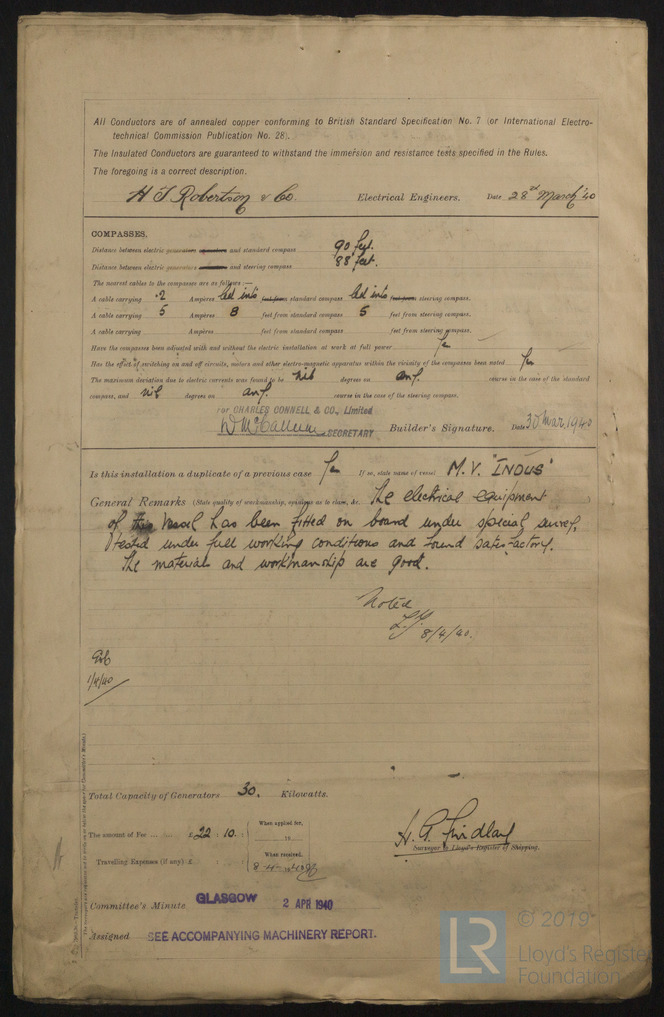 All Conductors are of annealed copper conforming to British Standard Specification No. 7 (or International Electro-
technical Commission Publication No. 28).
The Insulated Conductors are guaranteed to withstand the immersion and resistance tests specified in the Rules.
The foregoing is a correct description.
H J Robertson & Co. Electrical Engineers. Date 28th March '40
COMPASSES.
Distance between electric generators and standard compass 90 feet.
Distance between electric generators and steering compass 88 feet.
The nearest cables to the compasses are as follows:—
A cable carrying .2 Ampères led into feet from standard compass led into feet from steering compass.
A cable carrying 5 Ampères 8 feet from standard compass 5 feet from steering compass.
A cable carrying Ampères feet from standard compass feet from steering compass.
Have the compasses been adjusted with and without the electric installation at work at full power Yes
Has the effect of switching on and off circuits, motors and other electro-magnetic apparatus within the vicinity of the compasses been noted Yes
The maximum deviation due to electric currents was found to be nil degrees on any course in the case of the standard
compass, and nil degrees on any course in the case of the steering compass.
For CHARLES CONNELL & CO., Limited
SECRETARY Builder's Signature. Date 30 Mar. 1940
Is this installation a duplicate of a previous case Yes If so, state name of vessel M.V. "INDUS"
General Remarks (State quality of workmanship, opinions as to class, &c. The electrical equipment
of this vessel has been fitted on board under special survey,
tested under full working conditions and found satisfactory.
The materials and workmanship are good.
Noted
8/4/40.
1/4/40
Total Capacity of Generators 30. Kilowatts.
The amount of Fee ... £22 : 10 :
When applied for,
Travelling Expenses (if any) £ : :
When received.
H. G. Findlay
Surveyor to Lloyd's Register of Shipping.
Committee's Minute GLASGOW 2 APR 1940
Assigned SEE ACCOMPANYING MACHINERY REPORT.
LR
© 2019
Lloyd's Register
Foundation